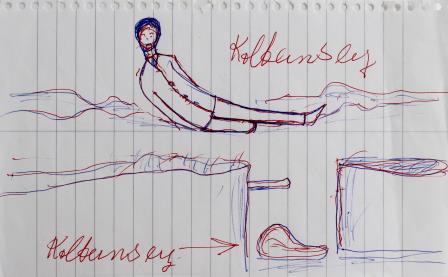 Kolbeinsey
Kolbeinsey